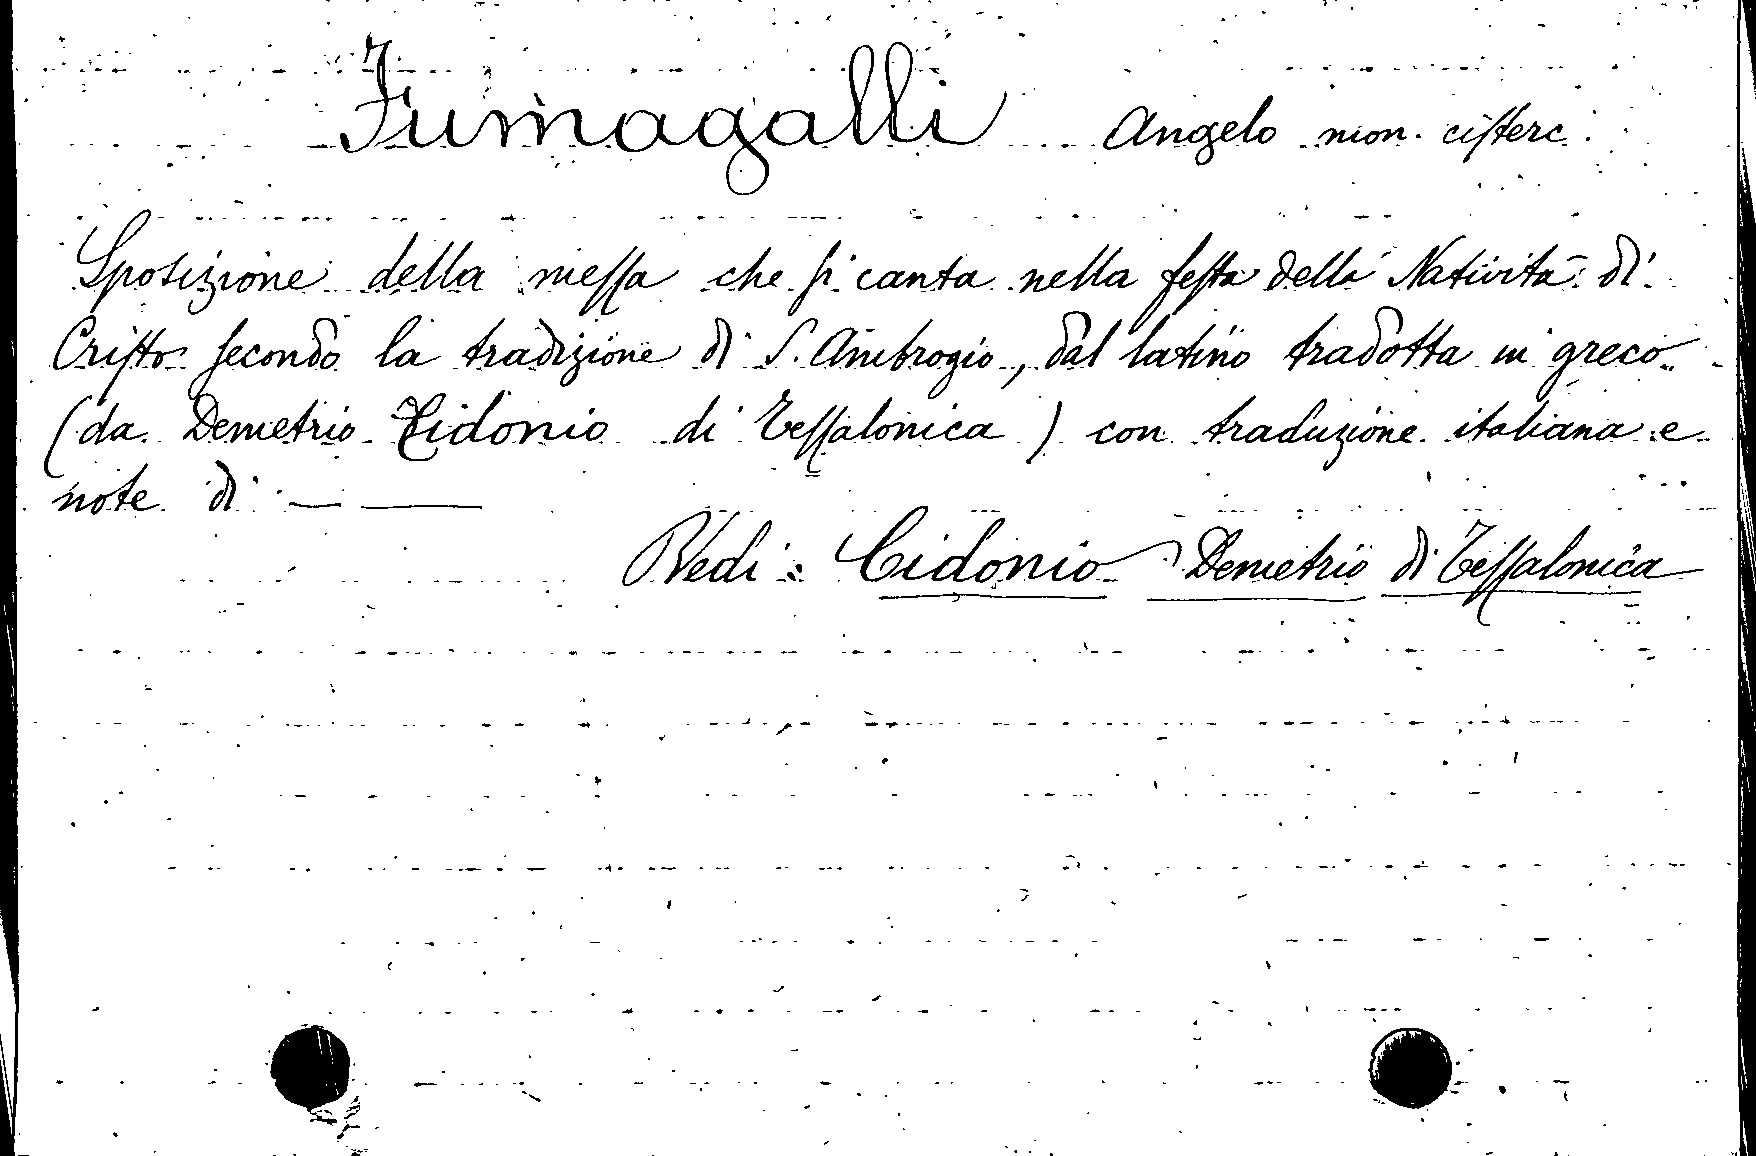 Fumagalli Angelo mon. cisterc.
Sposizione della messa che si canta nella festa della Natività di
Cristo secondo la tradizione di S. Ambrogio, dal latino tradotta in greco
(da Demetrio Cidonio di Tessalonica) con traduzione italiana e
note di — —
Vedi: Cidonio Demetrio di Tessalonica